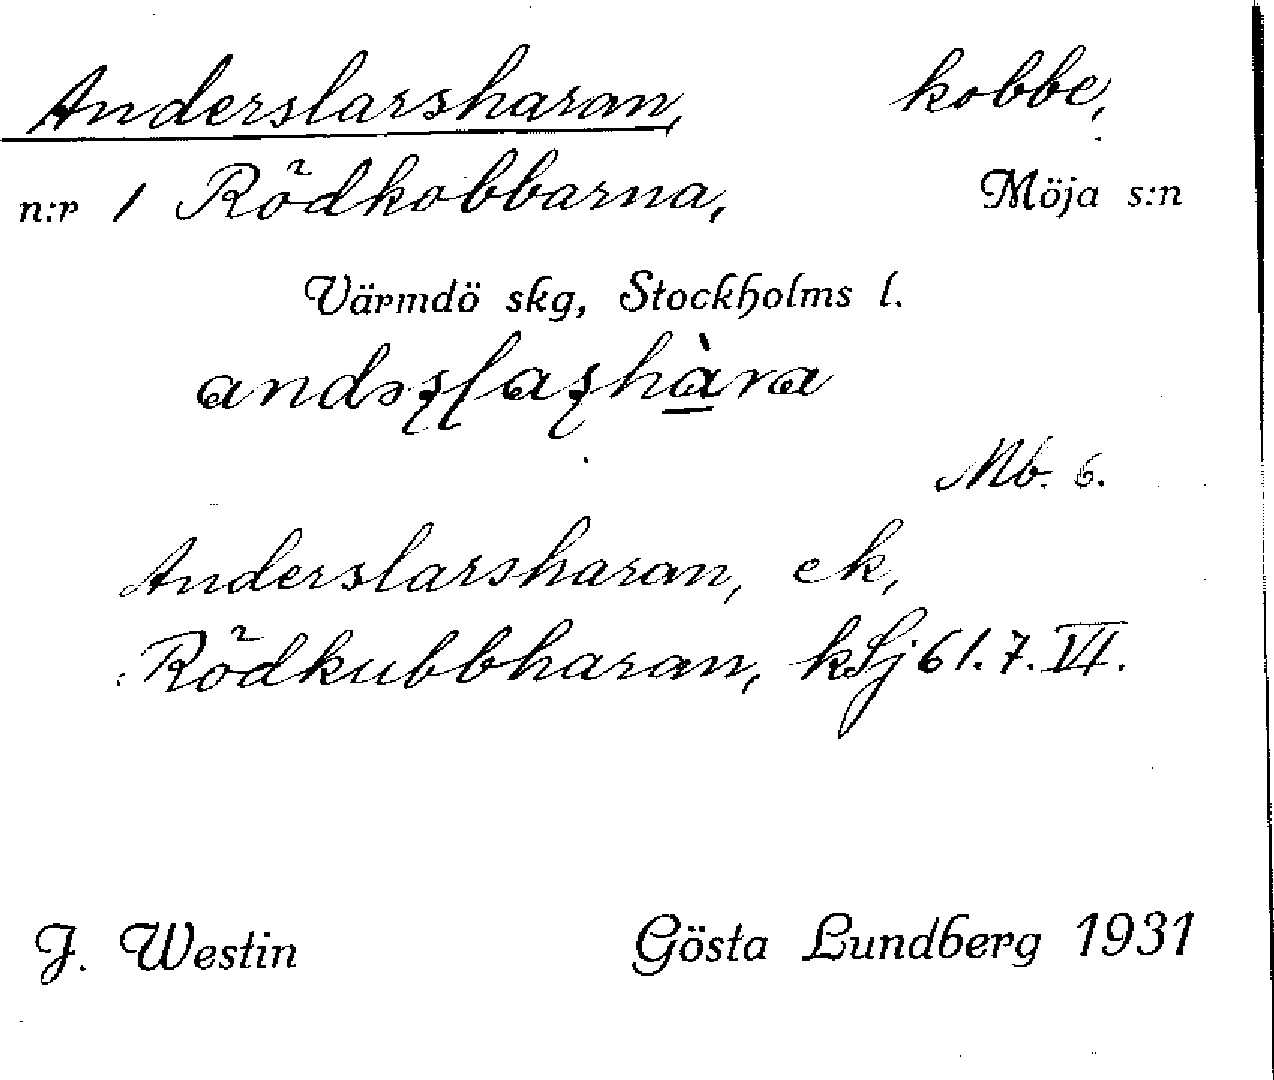 Anderslarsharan, kobbe,
n:r 1 Rödkobbarna, Möja s:n
Värmdö skg, Stockholms l.
Mb. 6.
Anderslarsharan, ek,
Rödkubbharan, kSj 61.7.VI.
J. Westin Gösta Lundberg 1931